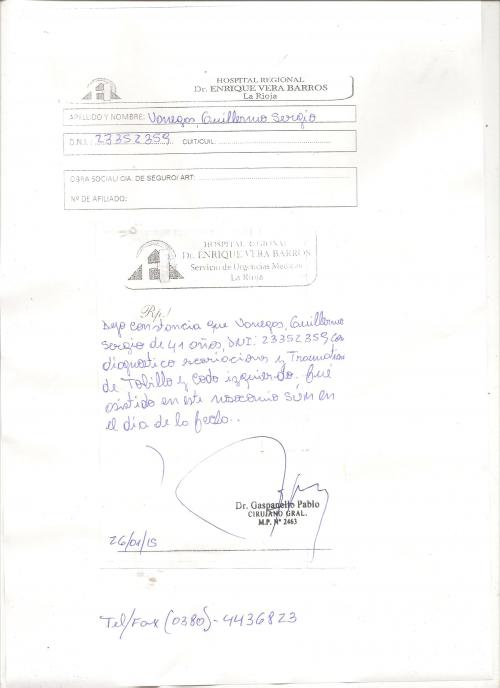 HOSPITAL REGIONAL
Dr. ENRIQUE VERA BARROS
La Rioja
APELLIDO Y NOMBRE: Vanegas, Guillermo Sergio
D.N.I.: 23352359 CUIT/CUIL:
OBRA SOCIAL/ CIA. DE SEGURO/ ART:
Nº DE AFILIADO:
HOSPITAL REGIONAL
Dr. ENRIQUE VERA BARROS
Servicio de Urgencias Medicas
La Rioja
Rp.!
Dejo constancia que Vanegas, Guillermo
Sergio de 41 años, DNI: 23352359 con
diagnostico escoriaciones y Traumatismo
de Tobillo y Codo izquierdo. fué
asistido en este nosocomio SUM en
el día de la fecha..
Dr. Gaspanello Pablo
CIRUJANO GRAL.
M.P. Nº 2463
26/01/15
Tel/Fax (0380)-4436823